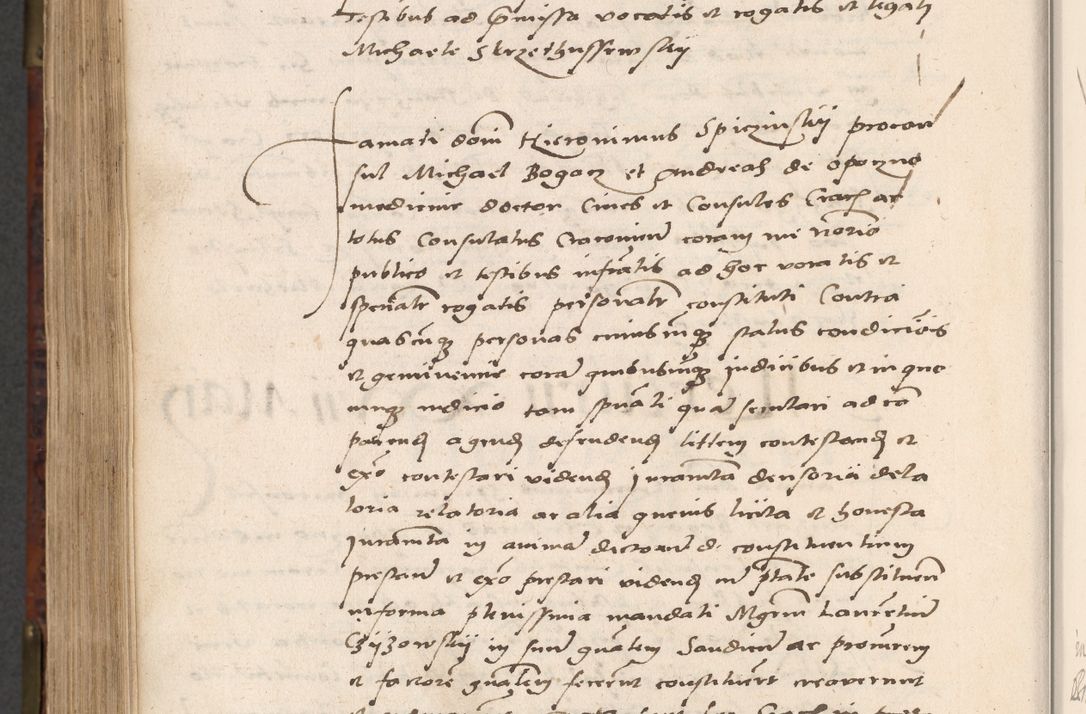 Testibus ad p̃missa vocatis et rogatis et legali
Michaele Skrzethussewskij
Famati dom̃ Hieronimus Spiczinskij procon
sul Michael Bogacz et Andreas de oporzno
medicine doctor Cives et Consules Crac̃ ac
totus Consulatus Cracovien̄ coram me not̃rio
publico et testibus infr̃atis ad hoc vocatis et
sp̃ialr̃ rogatis personalr̃ constituti Contra
quascũqz personas cuiuscũqz status condicionis
et gen̄ii venire corã quibuscũqz Judicibus et in quo
cunqz iudicio tam sp̃uali quã seculari ad cõ
parend̃ agend̃ defendend̃ littem contestand̃ et
ex̃o contestari vidend̃ Juramta densoria dela
toria relatoria ac alia quevis licita et honesta
Juramta in animã dictorum d. constituentium
prestand̃ et ex̃o prestari vidend̃ cu ptate substituen̄
in forma plenissima mandati Mgrum̃ Laurentiũ
Czijzowskij in suu g̃nalem Sindicu ac procurem
et factore g̃nalem fecerut constituert creaverunt